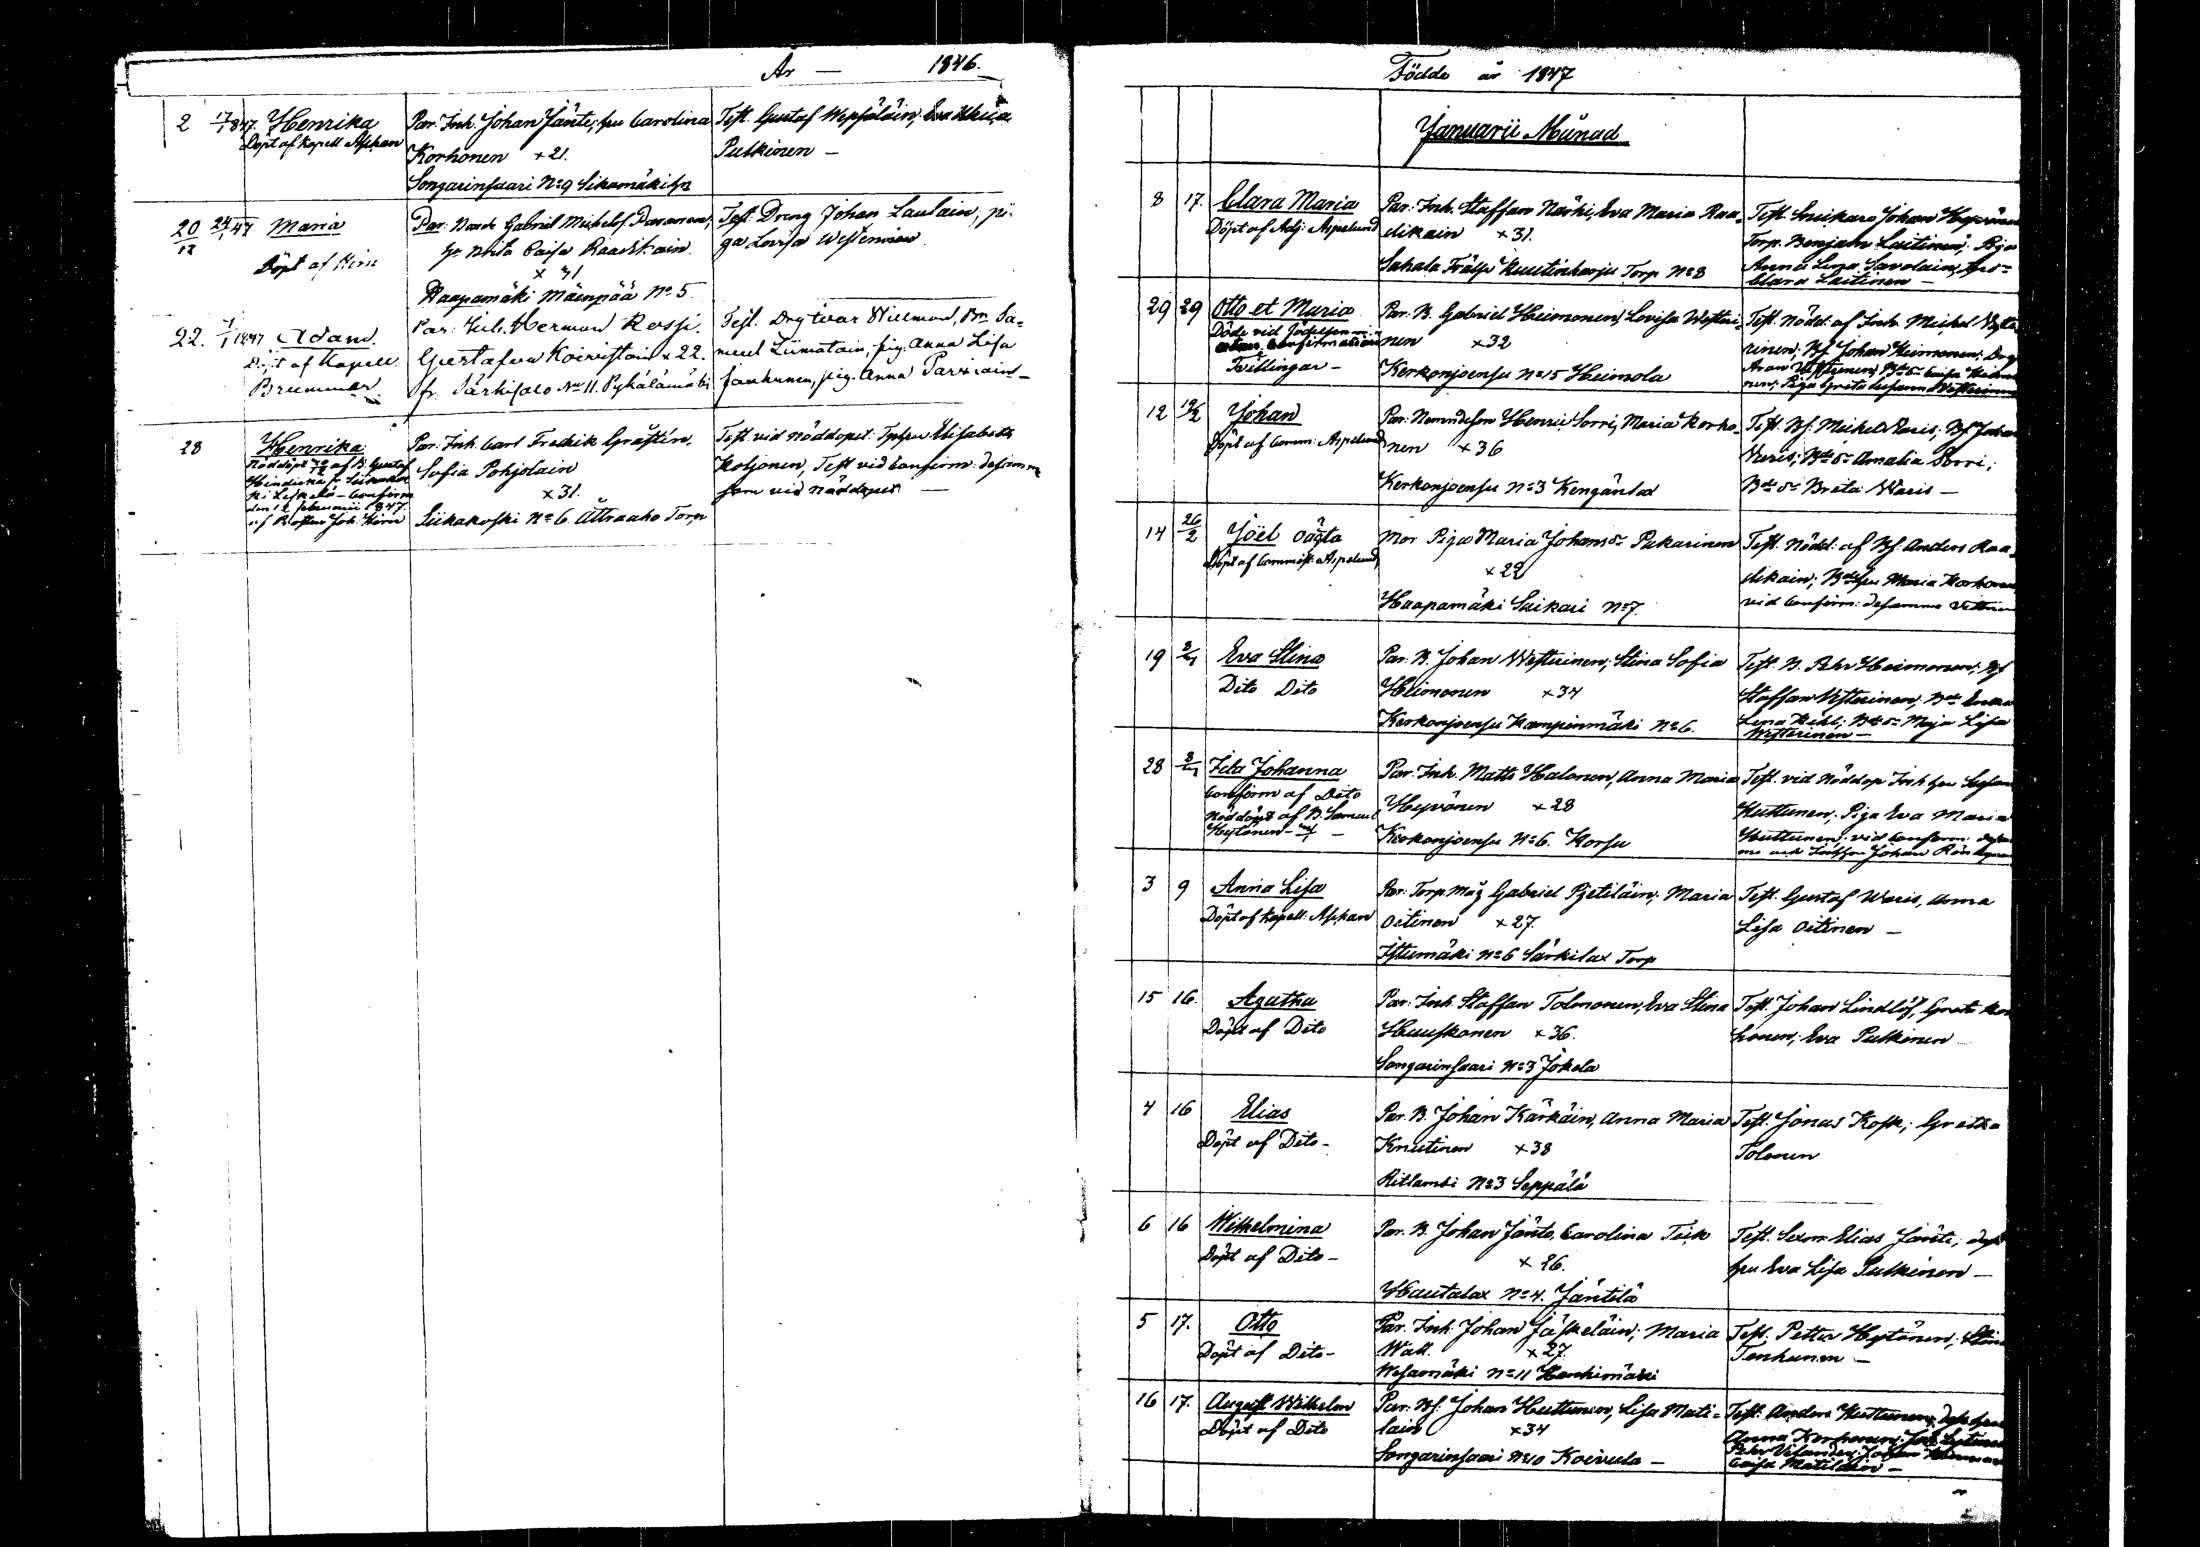 År — 1846.
2 17/1 847. Henrika
Döpt af Kapell Aspkan
Par. Inh. Johan Jänte, hu Carolina
Korhonen x 21.
Songarinsaari No 9 Sikomäki
Test. Gustaf Wepsäläin, Eva
Putkinen —
20/12 24/1 47 Maria
Döpt af Kirn
Par: Gabriel Michelsf. Paranen,
Brita Caisa Raadikain
x 31
Haapamäki Mäenpää No 5
Test: Dreng Johan Laulain, pi-
ga Lovisa Westerinen
22. 1/1 1847 Adam
Döpt af Kapell
Brummer
Par: Inh. Herman Rossi.
Gustafva Koivistoin x 22.
fr. Särkisalo No 11. Pykälämäki
Test. Drg Ivar Willman, Bn Sa-
muel Liimatain, pig. Anna Lisa
Janhunen, pig. Anna Parviain —
28 Henrika
Nöddöpt af B. Gustaf
Confirm
den 12 februarii 1847.
af Joh. Kirn
Par. Inh. Carl Fredrik Gråsten,
Sofia Pohjolain
x 31.
Siikakoski No 6 Torp
Test vid Nöddopet: Elisabeth
Koljonen, Test vid Confirm: desamma
som vid Nöddopet —
Födde år 1847
Januarii Månad
8 17. Clara Maria
Döpt af Adj: Aspelund
Par: Inh. Staffan Närhi, Eva Maria Raa-
dikain x 31.
Sahala Frälse Kuustinharju Torp No 8
Test. Snikare Johan Hyvönen
Torp. Benjam Laitinen; Piga
Anna Lena Savolain,
Clara Laitinen —
29 29 Otto et Maria
Döde vid Födelsen
Tvillingar —
Par. B. Gabriel Heimonen, Lovisa Westeri-
nen x 32
Kerkonjoensu No 15 Heimola
Test. Nödd. af Inh. Michel Weste-
rinen; Bf. Johan Heimonen; Drg
Aron Westerinen; Caisa
Piga Greta Susanna Westerinen
12 12/2 Johan
Döpt af Comm: Aspelund
Par: Nämndeson Henric Sorri, Maria Korho-
nen x 36
Kerkonjoensu No 3 Kengänlax
Test. Bf. Michel Waris; Bf Johan
Waris; Bdr Amalia Sorri;
Bdr Breta Waris —
14 26/2 Joel oägta
Döpt af Commiss: Aspelund
Mor Piga Maria Johansdr Pukarinen
x 22
Haapamäki Saikari No 7.
Test. Nödd: af Bf. Anders Raa-
dikain; Maria Korhonen
vid Confirm: desamma vittnen
19 2/1 Eva Stina
Dito Dito
Par. B. Johan Westerinen; Stina Sofia
Heimonen x 34
Kerkonjoensu Kampinmäki No 6.
Test. B. Pehr Heimonen; Bf
Staffan Westerinen; Bdr
Lena Maja Lisa
Westerinen —
28 Ida Johanna
Confirm af Dito
Nöddöpt af B. Samuel
Hytönen —
Par. Inh. Matts Halonen, Anna Maria
Hyvönen x 28
Kerkonjoensu No 6. Korsu
Test. vid Nöddop Inh hu
Huttunen, Piga Eva Maria
Huttunen; vid Confirm:
och Johan
3 9 Anna Lisa
Döpt af Kapell: Aspkan
Par: Torp. måg Gabriel Pjetiläin; Maria
Oitinen x 27.
Istumäki No 6 Särkilax Torp
Test. Gustaf Waris, Anna
Lisa Oitinen —
15 16. Agatha
Döpt af Dito
Par. Inh. Staffan Tolmonen, Eva Stina
Huuskonen x 36.
Songarinsaari No 3 Jokela
Test. Johan Lindlöf, Greta Kor
honen; Eva Putkinen —
4 16 Elias
Döpt af Dito —
Par. B. Johan Kärkäin, Anna Maria
Knutinen x 38
Ritlambi No 3 Seppälä
Test. Jonas Kosk; Gretha
Tolonen
6 16 Wilhelmina
Döpt af Dito —
Par. B. Johan Jänte, Carolina Tick
x 26.
Hautalax No 4. Jäntilä
Test. Sexm Elias Jänte; dess
hu Eva Lisa Putkinen —
5 17. Otto
Döpt af Dito —
Par. Inh. Johan Jäskeläin; Maria
Wall. x 27.
Wesamäki No 11 Hankimäki
Test. Petter Hytönen; Stina
Tenhunen —
16 17. August Wilhelm
Döpt af Dito
Par. Bf. Johan Huttunen, Lisa Mati-
lain x 34
Songarinsaari No 10 Koivula —
Test. Anders Huttunen; dess hu
Anna Korhonen;
Pehr Johan
Caisa Matiläin —